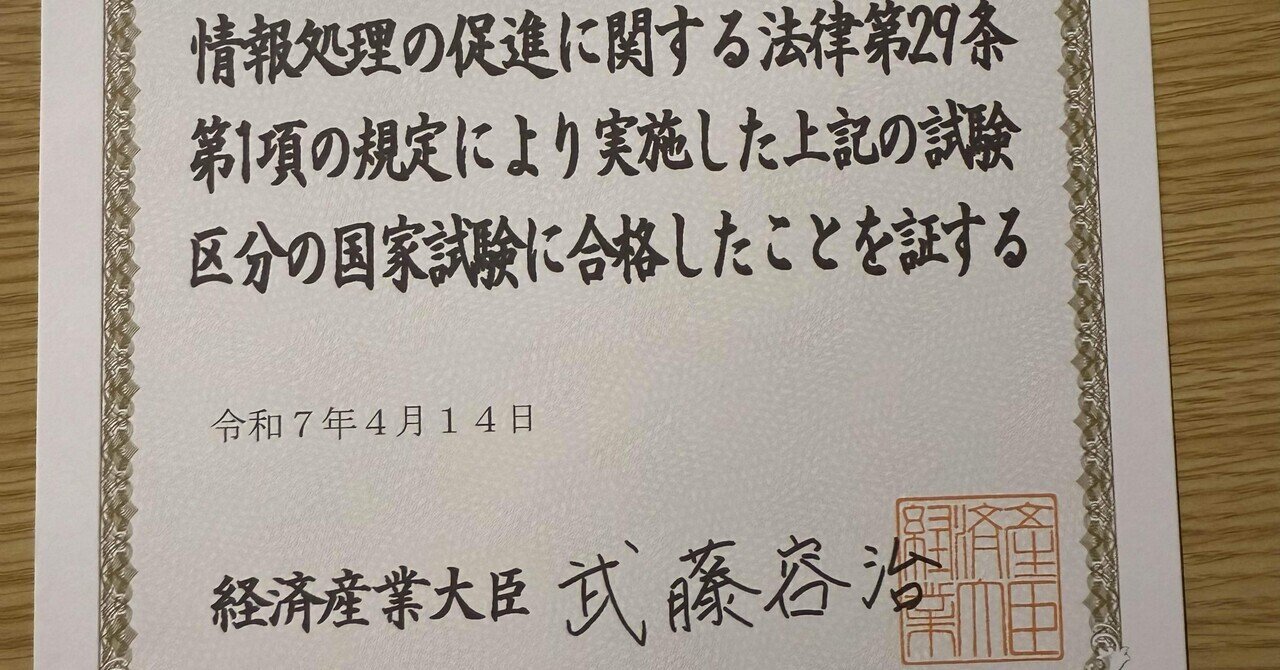 情報処理の促進に関する法律第29条
第1項の規定により実施した上記の試験
区分の国家試験に合格したことを証する
令和７年４月１４日
経済産業大臣 武藤容治
経済産業大臣